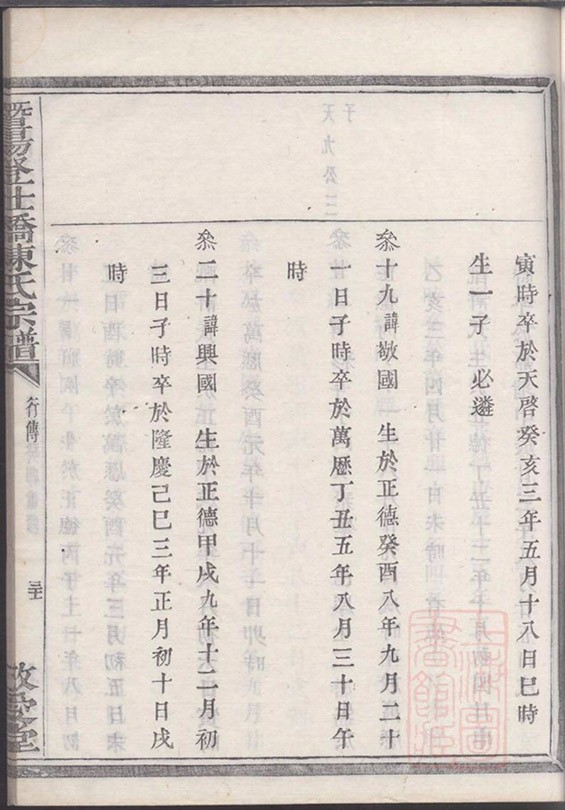 寅時卒於天啓癸亥三年五月十八日巳時
生一子 必遴
叅十九諱敬國 生於正德癸酉八年九月二十
一日子時卒於萬厯丁丑五年八月三十日午
時
叅二十諱興國 生於正德甲戌九年十二月初
三日子時卒於隆慶己巳三年正月初十日戌
時
暨陽登仕橋陳氏宗譜
行傳
敬愛堂